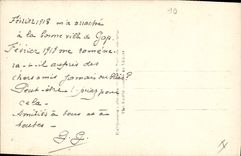 Février 1918 m'a arraché
à la bonne ville de Gap.
Février 1919 me ramènera-
t-il auprès des
chers amis jamais oubliés ?
Peut-être ! priez pour
cela.
Amitiés à tous et à
toutes.
G. G.